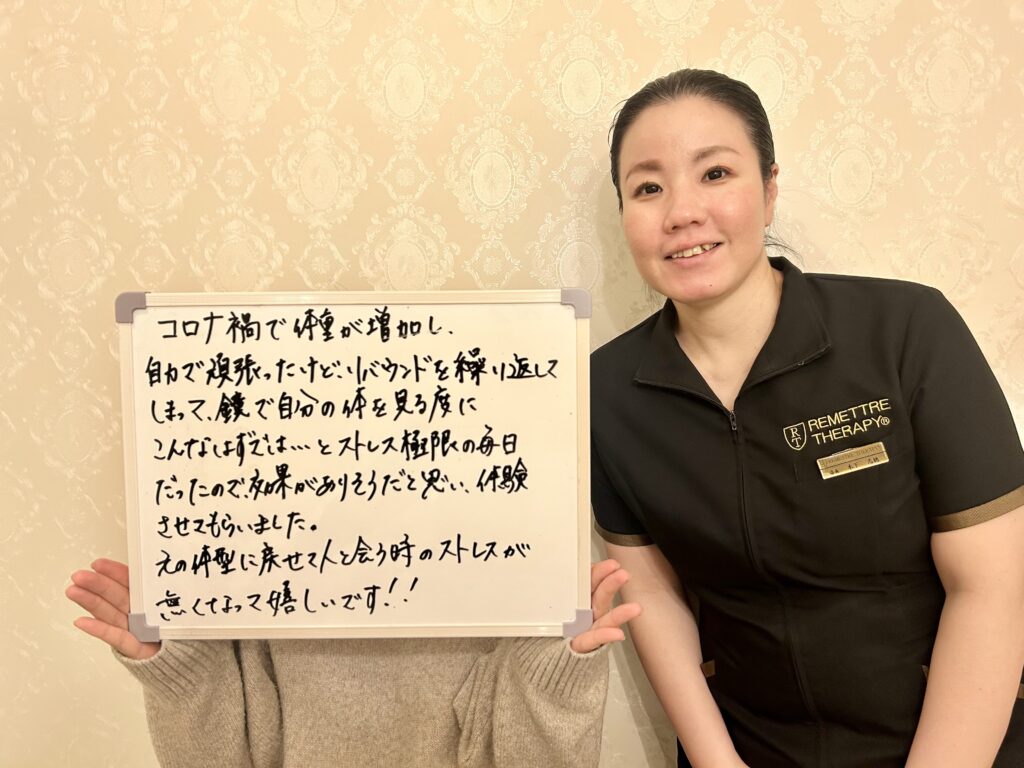 コロナ禍で体重が増加し、
自力で頑張ったけど、リバウンドを繰り返して
しまって、鏡で自分の体を見る度に
こんなはずでは…とストレス極限の毎日
だったので、効果がありそうだと思い、体験
させてもらいました。
元の体型に戻せて人と会う時のストレスが
無くなって嬉しいです！！
RT
REMETTRE
THERAPY®
REMETTRE THERAPY